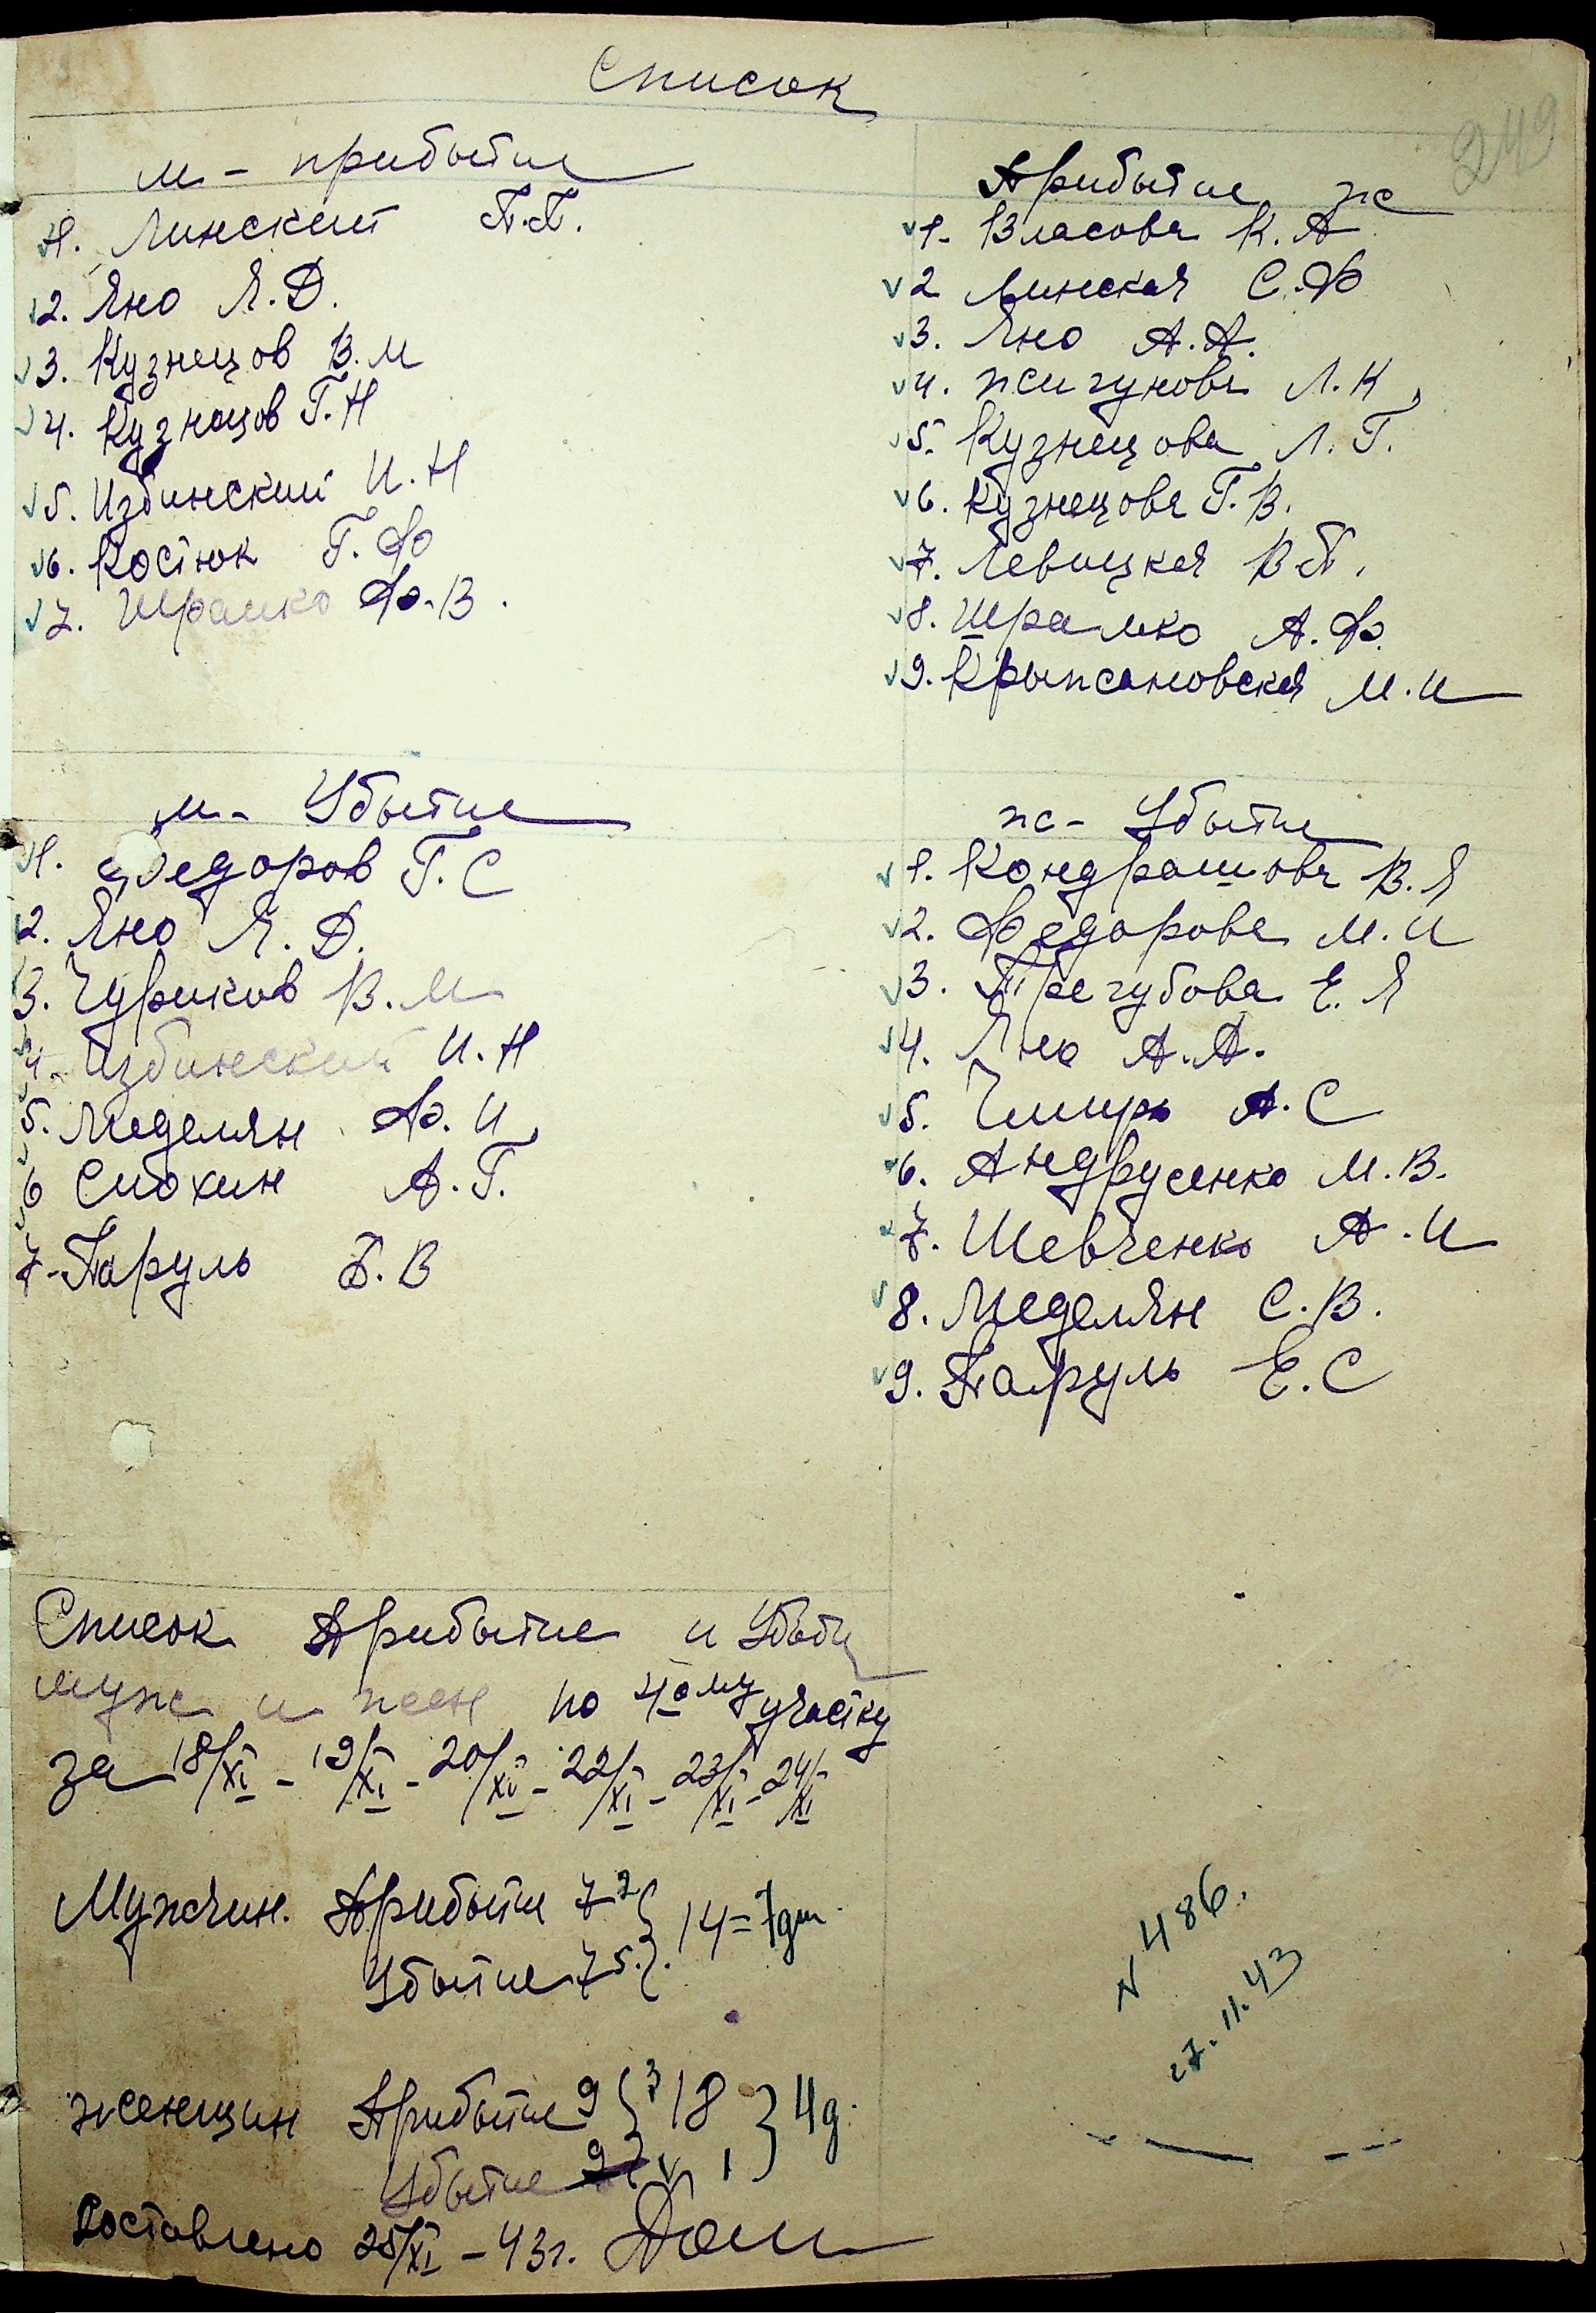 Список
249
м - прибытие
1. Линский П.П.
2. Яно Я.Д.
3. Кузнецов В.М
4. Кузнецов Г.Н
5. Избинский И.Н
6. Костюк Г.Ф
7. Шрамко Ф.В.
Прибытие ж
1. Власова К.А
2 Линская С.Ф
3. Яно А.А.
4. жигунова Л.К
5. Кузнецова Л.Г.
6. Кузнецова Г.В.
7. Левицкая В.П.
8. Шрамко А.Ф.
9. Крыжановская М.И
м - Убытие
1. Федоров Г.С
2. Яно Я.Д.
3. Чуриков В.М
4. Избинский И.Н
5. Меделян Ф.И
6 Смохин А.Г.
7. Паруль Б.В
ж - Убытие
1. Кондрашова В.Я
2. Федорова М.И
3. Трегубова Е.Я
4. Яно А.А.
5. Чмирь А.С
6. Андрусенко М.В.
7. Шевченко А.И
8. Меделян С.В.
9. Паруль Е.С
Список Прибытие и Убыти
муж и жен по 4ому участку
за 18/XI - 19/XI - 20/XI - 22/XI - 23/XI - 24/XI
Мужчин. Прибытие 7 2 } 14 = 7
Убытие 7 5.
женщин Прибытие 9 } 3 18 } 4д.
Убытие 9
Доставлено 25/XI - 43г.
N 486.
27.11.43